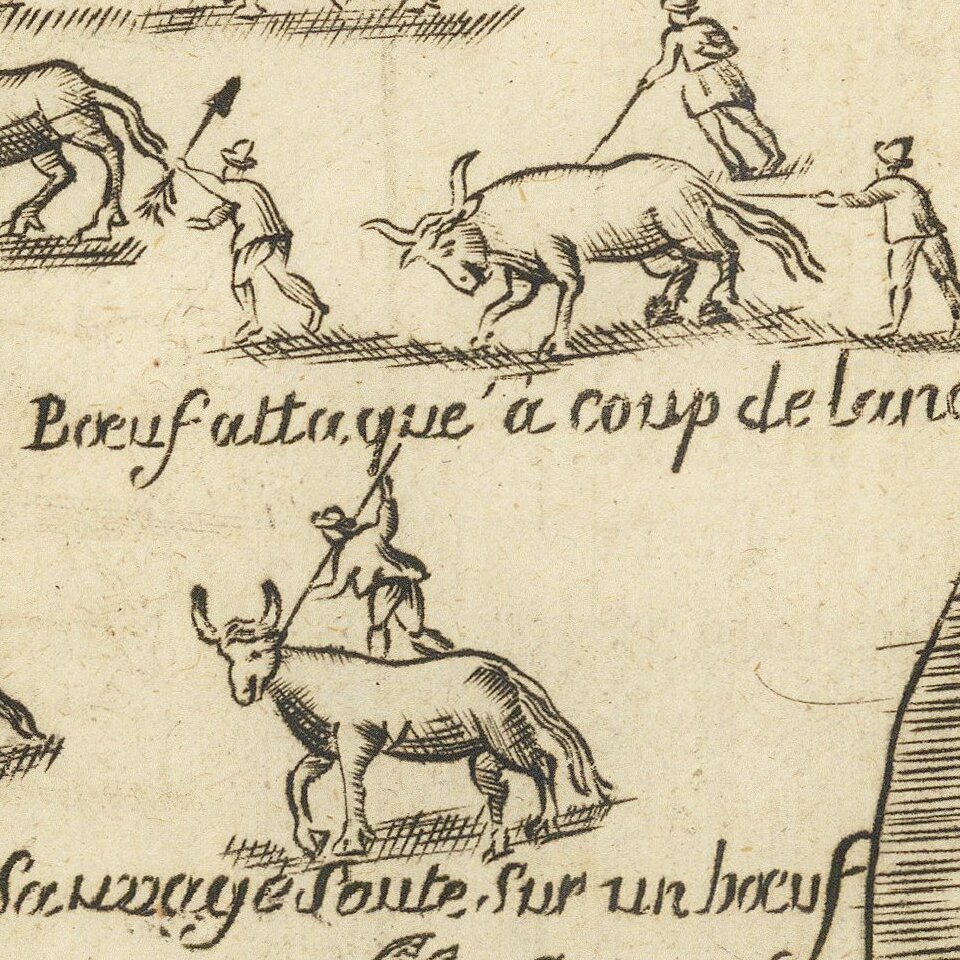 Bœuf attaqué à coup de lanc
Sauvage soute sur un bœuf